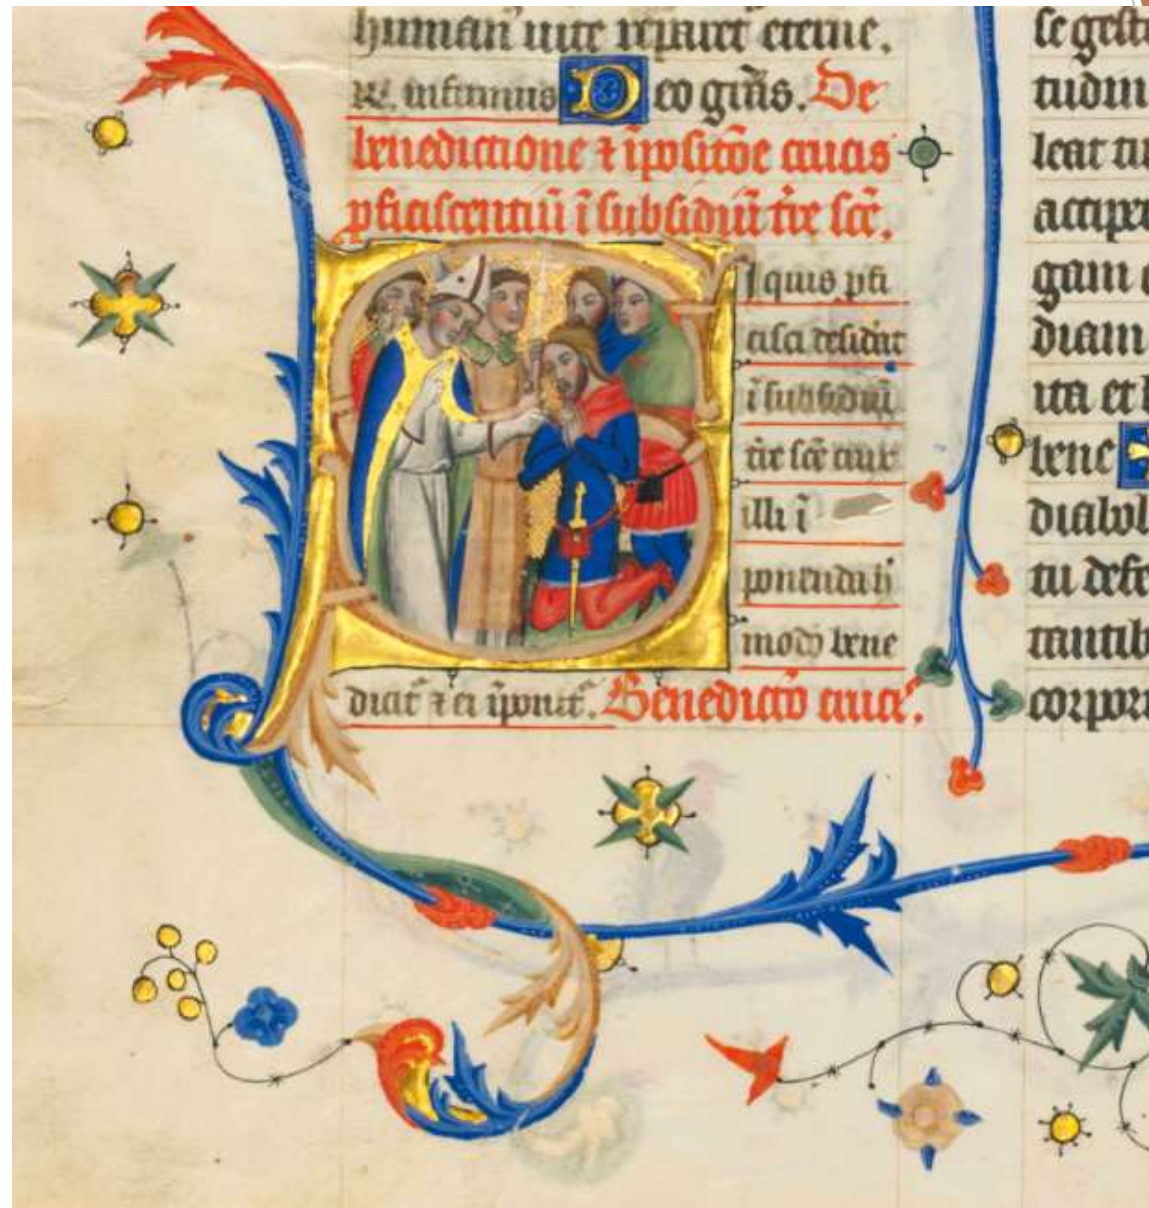 human̄ uite reparet eterne.
℟. infirmus Deo gr̄as. De
benedictione ⁊ īpositōe crucis
ꝓficiscentiū ī subsidiū tr̄e sc̄e.
Siquis ꝓfi
cisci desiderat
ī subsidiū
tr̄e sc̄e crux
illi ī
ponenda h̄
modo bene
dicit᷑ ⁊ ei īponit᷑. Benedictō cruci᷑.
se gest
tudin
leat tu
accipe
gam
diam
ita et
bene
diabol
tu defe
tantib
corpor